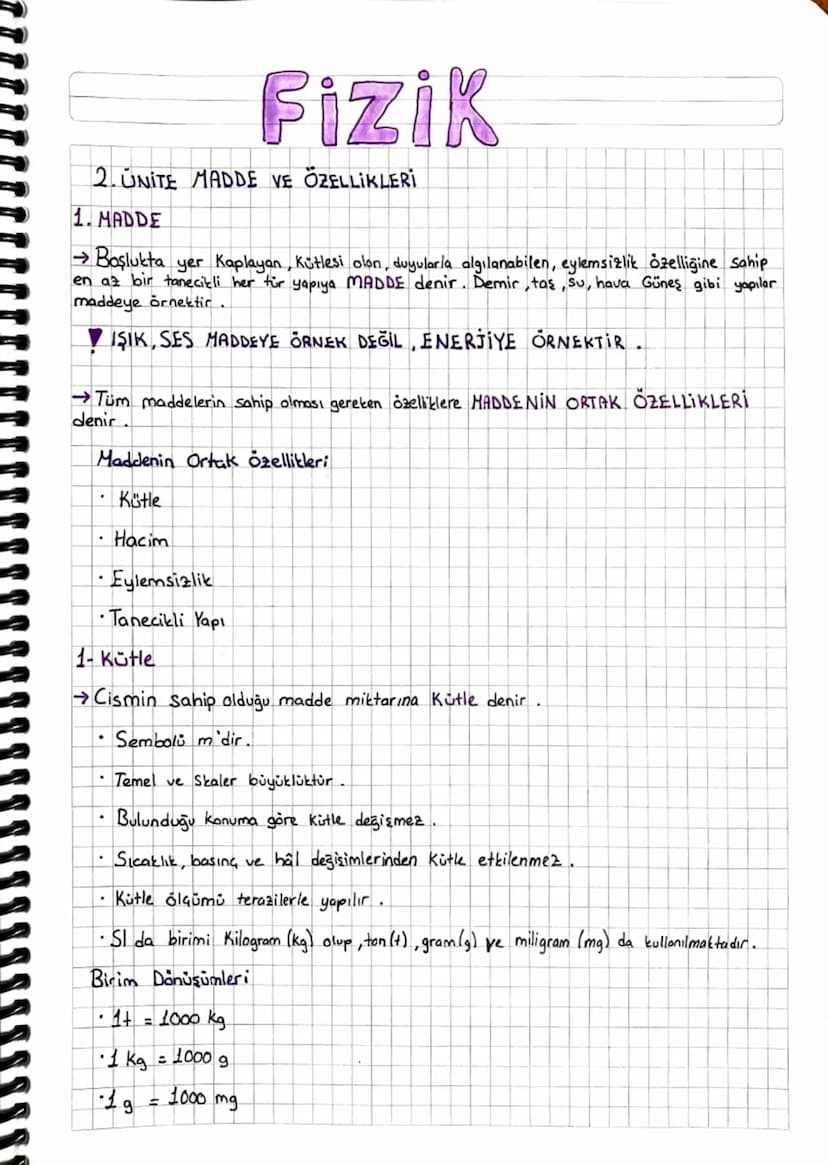 FİZİK
2. ÜNİTE MADDE VE ÖZELLİKLERİ
1. MADDE
→ Boşlukta yer kaplayan, kütlesi olan, duyularla algılanabilen, eylemsizlik özelliğine sahip
en az bir tanecikli her tür yapıya MADDE denir. Demir, taş, su, hava Güneş gibi yapılar
maddeye örnektir.
! IŞIK, SES MADDEYE ÖRNEK DEĞİL, ENERJİYE ÖRNEKTİR.
→ Tüm maddelerin sahip olması gereken özelliklere MADDENİN ORTAK ÖZELLİKLERİ
denir.
Maddenin Ortak Özellikleri
· Kütle
· Hacim
· Eylemsizlik
· Tanecikli Yapı
1- Kütle
→ Cismin sahip olduğu madde miktarına kütle denir.
· Sembolü m'dir.
· Temel ve skaler büyüklüktür.
· Bulunduğu konuma göre kütle değişmez.
· Sıcaklık, basınç ve hâl değişimlerinden kütle etkilenmez.
· Kütle ölçümü terazilerle yapılır.
· SI da birimi kilogram (kg) olup, ton (t), gram (g) ve miligram (mg) da kullanılmaktadır.
Birim Dönüşümleri
· 1t = 1000 kg
· 1 kg = 1000 g
· 1 g = 1000 mg